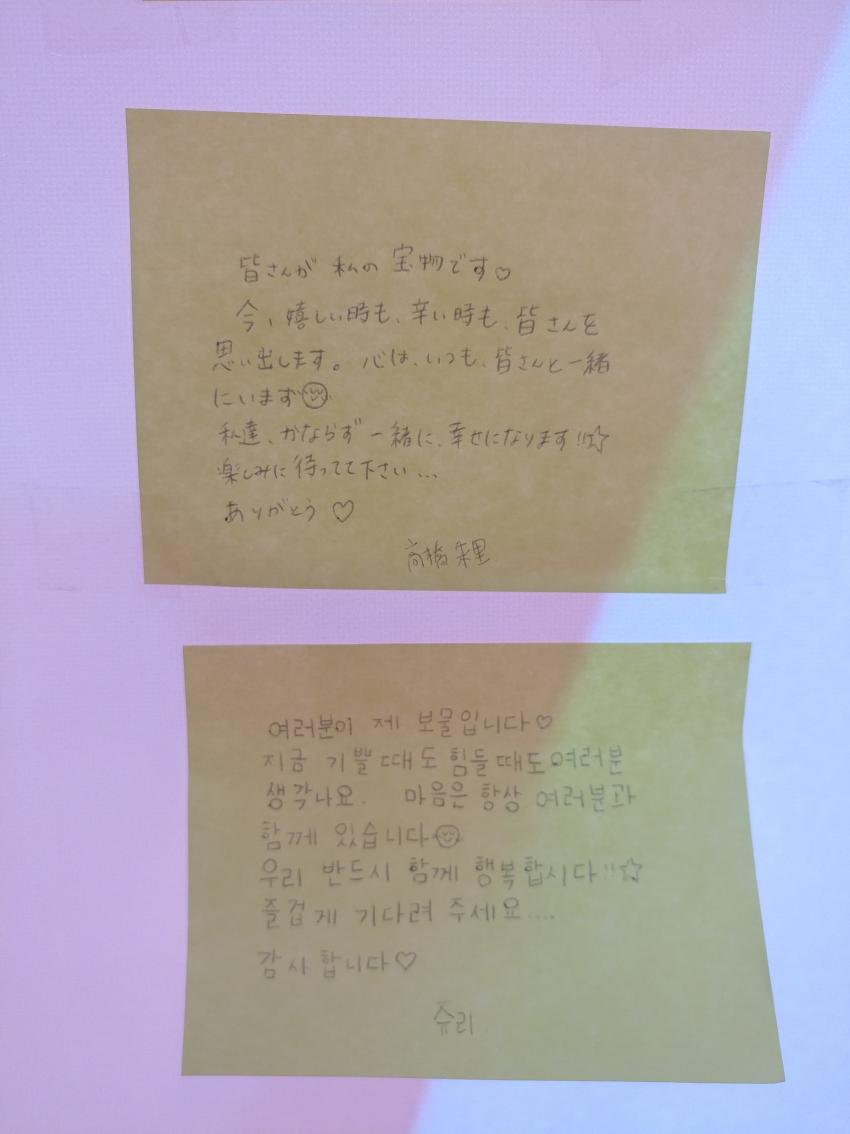 皆さんが 私の 宝物です♡
今、嬉しい時も、辛い時も、皆さんを
思い出します。心は、いつも、皆さんと一緒
にいます☺
私達、かならず一緒に、幸せになります!!☆
楽しみに待ってて下さい...
ありがとう ♡
高橋朱里
여러분이 제 보물입니다♡
지금 기쁠때도 힘들때도여러분
생각나요. 마음은 항상 여러분과
함께 있습니다☺
우리 반드시 함께 행복합시다!!☆
즐겁게 기다려 주세요....
감사합니다♡
쥬리